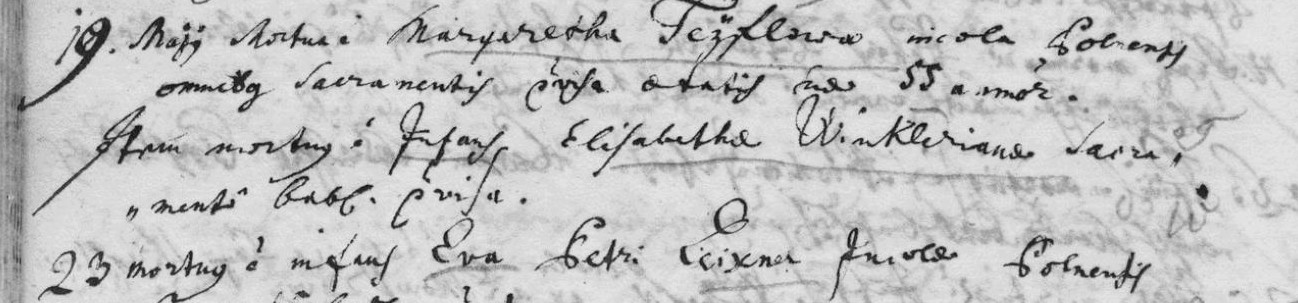 19. Maÿ Mortua ẽ Margaretha incola Polnensis
omnibq Sacramentis p̃visa etatis suae 55 annor.
Item mortuq ẽ Infans Elisabethae Winkleriane Sacra,
„mentô bab. p̃visa.
23 mortuq ẽ infans Eva Petri Leixner Incolae Polnensis